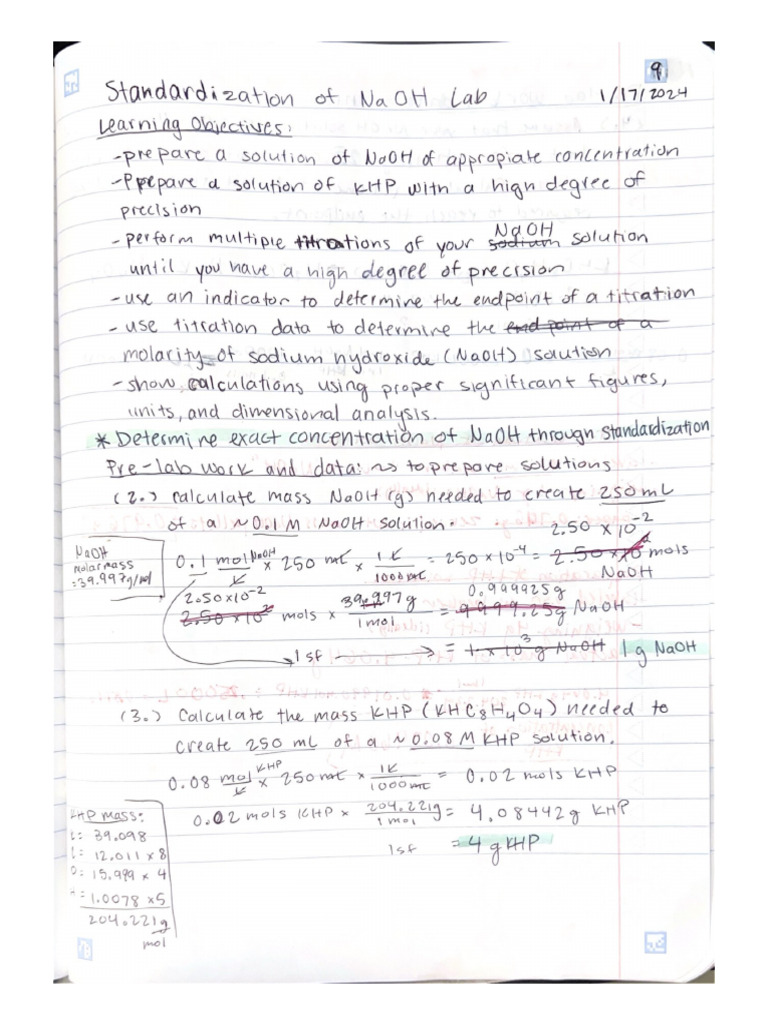 9
Standardization of NaOH Lab 1/17/2024
Learning Objectives:
-prepare a solution of NaOH of appropiate concentration
-Prepare a solution of KHP with a high degree of
precision
-perform multiple titrations of your sodium NaOH solution
until you have a high degree of precision
-use an indicator to determine the endpoint of a titration
-use titration data to determine the end point of a
molarity of sodium hydroxide (NaOH) solution
-show calculations using proper significant figures,
units, and dimensional analysis.
* Determine exact concentration of NaOH through standardization
Pre-lab work and data: ~> to prepare solutions
(2.) Calculate mass NaOH (g) needed to create 250mL
of a ~0.1 M NaOH solution.
NaOH
molar mass
=39.997g/mol
0.1 mol NaOH/L × 250 mL × 1L/1000mL = 250 × 10⁻⁴ = 2.50 × 10⁻² mols
NaOH
2.50×10⁻² mols × 39.997g/1mol = 0.999925g NaOH
9999.25g
1sf → = 1 × 10³ g NaOH 1g NaOH
(3.) Calculate the mass KHP (KHC₈H₄O₄) needed to
create 250 mL of a ~0.08 M KHP solution.
0.08 mol KHP/L × 250mL × 1L/1000mL = 0.02 mols KHP
0.02 mols KHP × 204.221g/1mol = 4.08442g KHP
1sf = 4g KHP
KHP mass:
= 39.098
= 12.011 × 8
= 15.999 × 4
= 1.0078 ×5
204.221g
mol